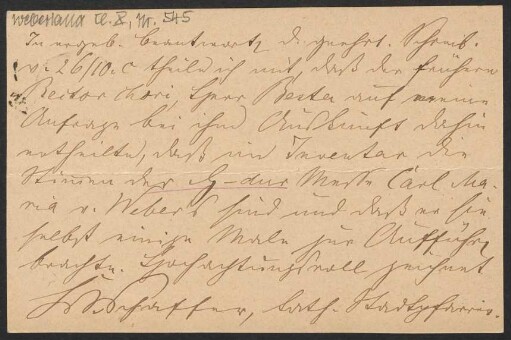 Weberiana Cl. X, Nr. 545
In ergeb. Beantwortg d. geehrt. Schreib.
v. 26/10. c theile ich mit, daß der frühere
Rector chori, Herr Besta auf meine
Anfrage bei ihm Auskunft dahin
ertheilte, daß im Inventar die
Stimmen der G-dur Messe Carl Ma-
ria v. Webers sind und daß er sie
selbst einige Male zur Aufführg
brachte. Hochachtungsvoll zeichnet
Schaffer, kath. Stadtpfarrer.